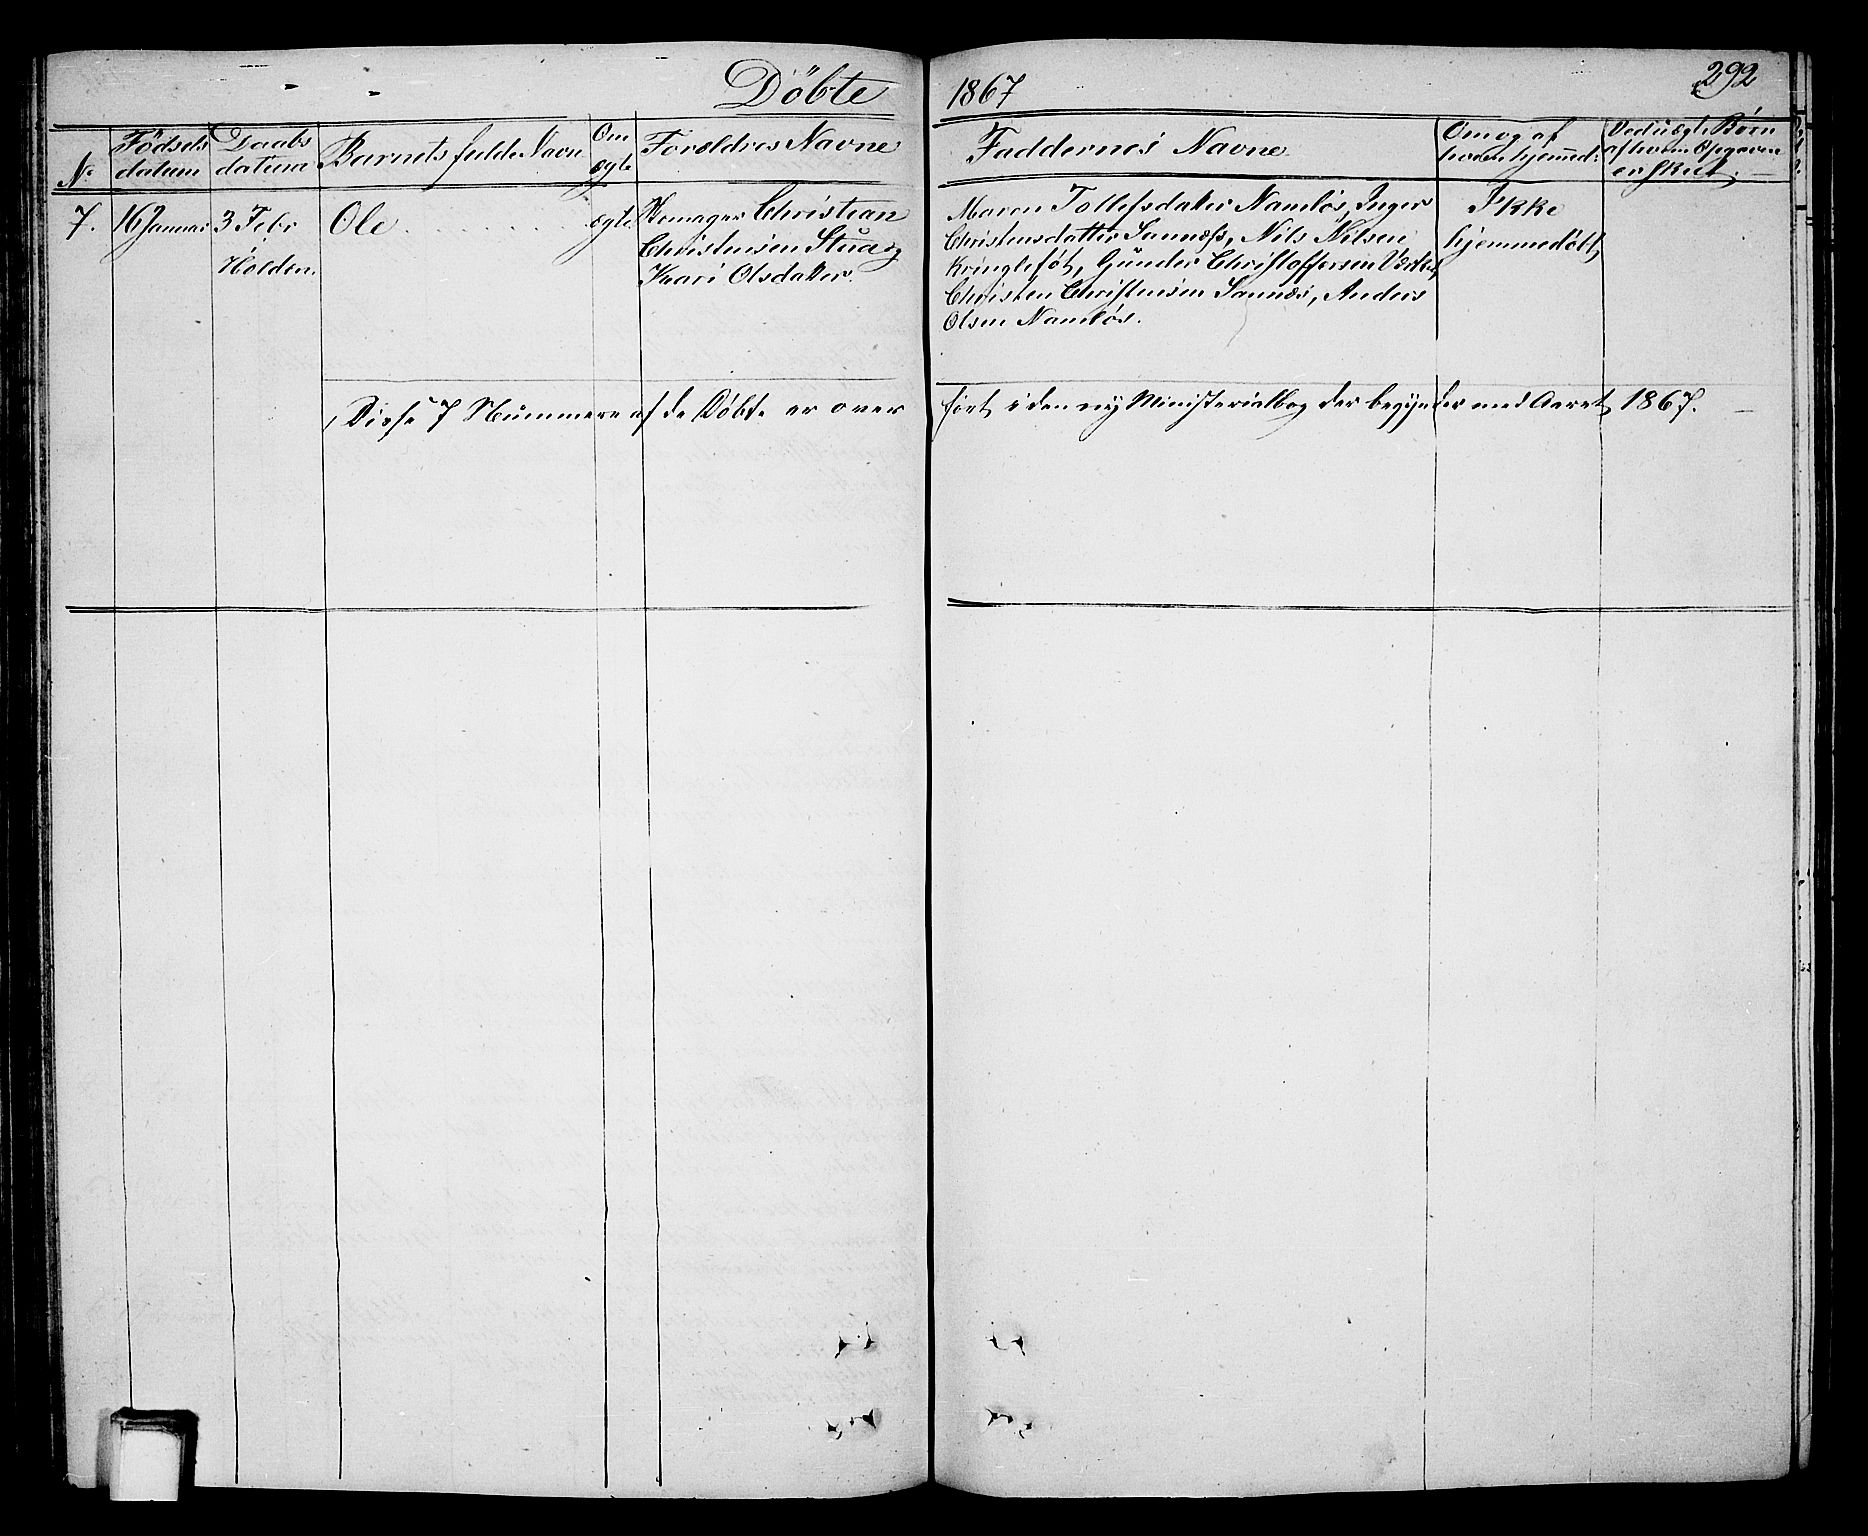 Döbte 1867
292
No
Fødsels datum
Daabs datum
Barnets fulde Navn
Om ægte
Forældres Navne
Faddernes Navne
Om og af hvem hjemmed:
Ved uægte Børn af hvem Opgaven er skeet.
7.
16 Januar
3 Febr
Holden.
Ole
ægte
Christian
Christensen Stua og
Kari Olsdatter.
Maren Tollefsdatter Namløs, Inger
Christensdatter Sannæss, Nils Nilsen
Kringlefot, Gunder Christoffersen
Christen Christensen Sannæs, Anders
Olsen Namløs.
Ikke
hjemmedöbt
Disse 7 Nummere af de Döbte er over ført i den ny Ministerialbog der begynder med Aaret 1867.